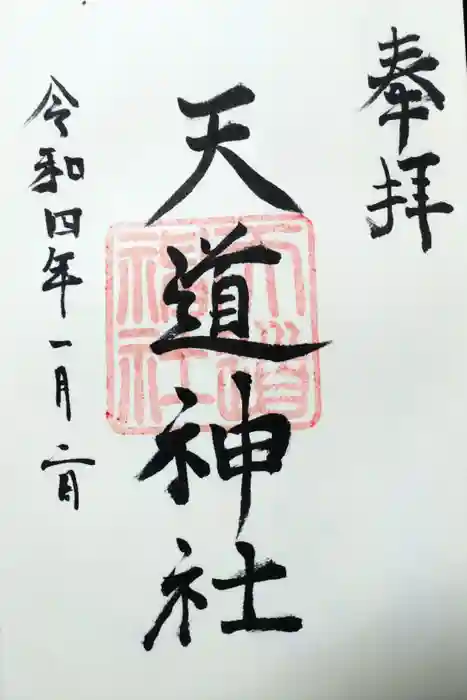 奉拝
天道神社
天道
神社
令和四年一月二日